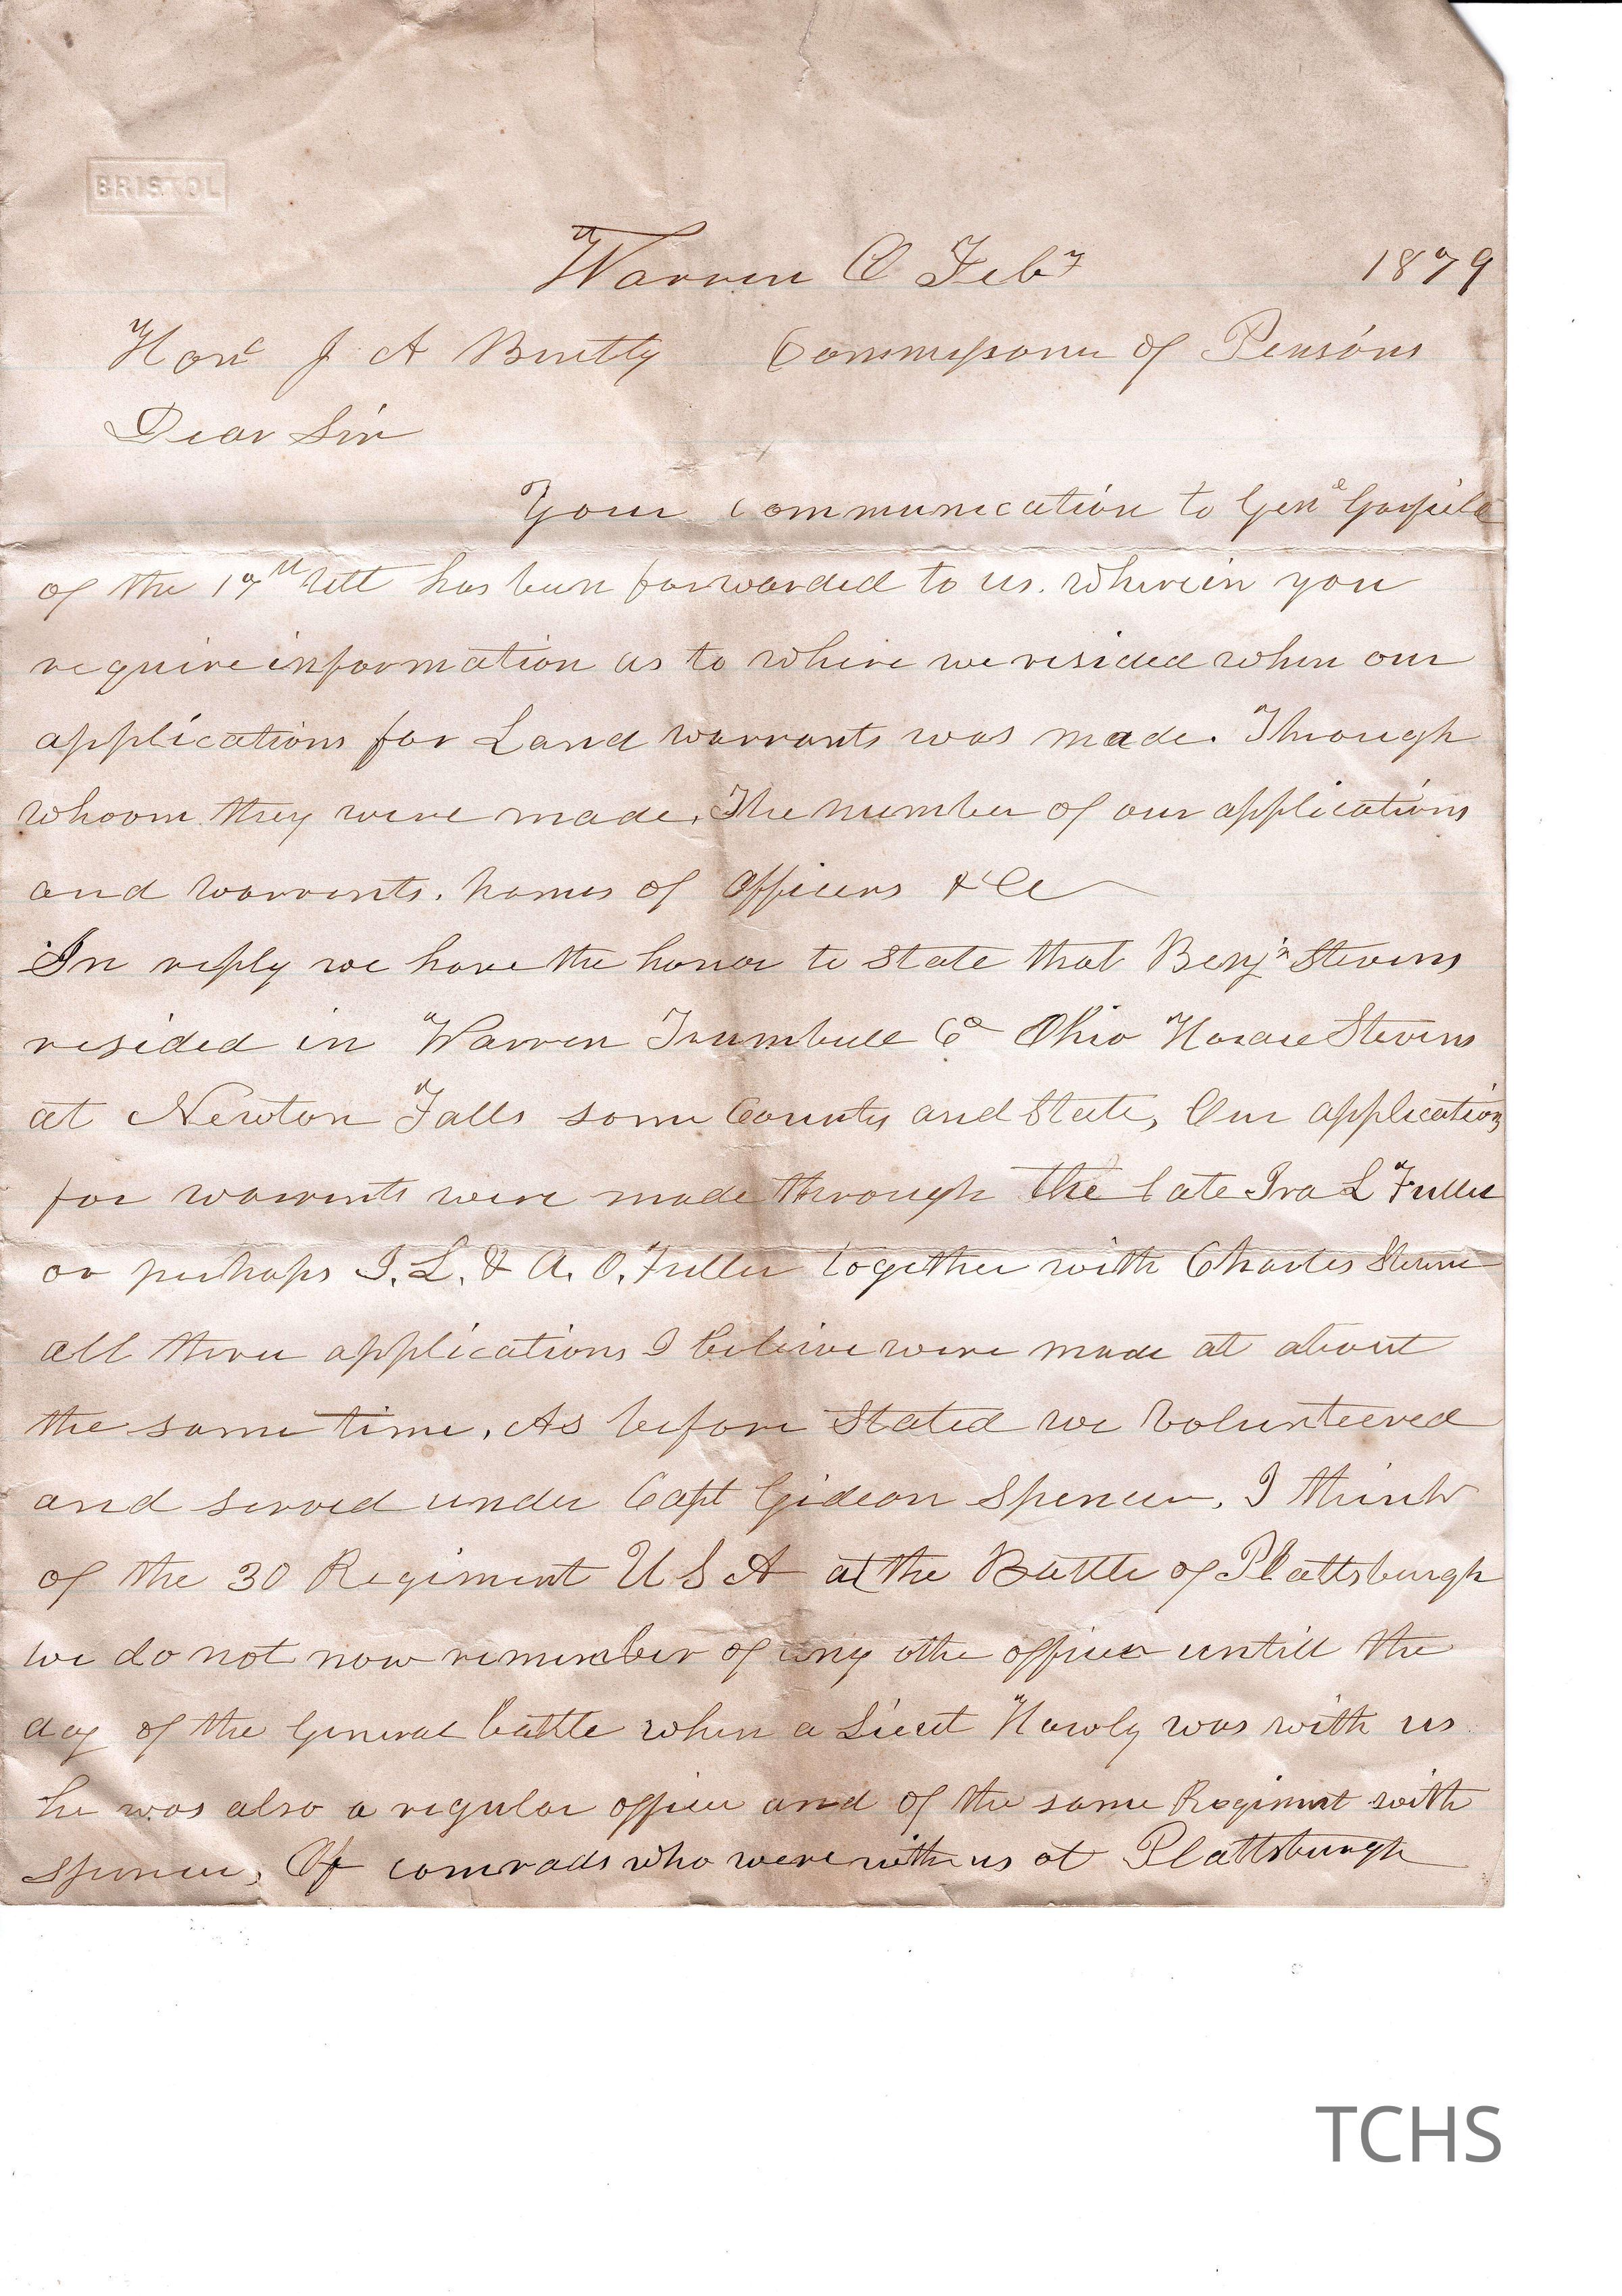 BRISTOL
Warren O Feby 1879
Hone J A Bently Commissioner of Pensions
Dear Sir
Your communication to Genl Garfield
of the 17th Ult has been forwarded to us. Wherein you
require information as to where we resided when our
applications for Land warrants was made. Through
whoom they were made. The number of our applications
and warrants. names of officers &c
In reply we have the honor to state that Benjn Stevens
resided in Warren Trumbull Co Ohio Horace Stevens
at Newton Falls same County and State, Our applications
for warrants were made through the late Ira L Fuller
or perhaps I. L. & A. O. Fuller together with Charles Stevens
all three applications I believe were made at about
the same time. As before stated we volunteered
and served under Capt Gideon Spencer. I think
of the 30 Regiment U S A at the Battle of Plattsburgh
we do not now remember of any othe officer untill the
day of the General battle when a Lieut Hawly was with us
he was also a regular officer and of the same Regiment with
Spencer. Of comrads who were with us at Plattsburgh
TCHS